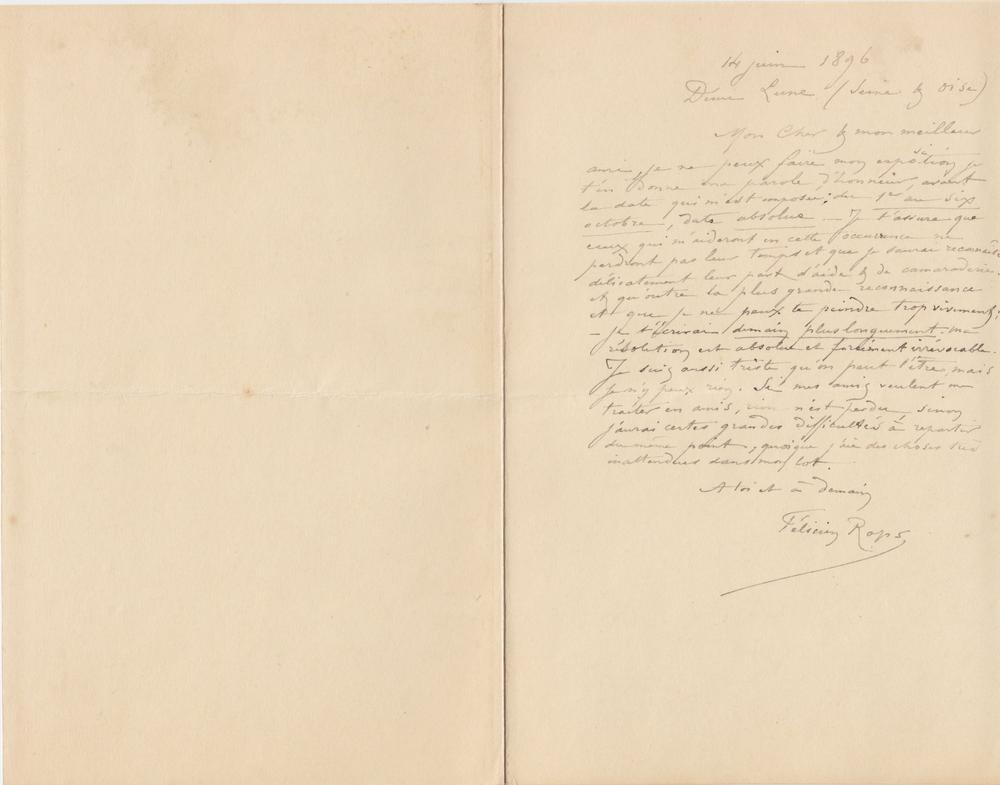 14 juin 1896
Demi Lune (Seine & Oise)
Mon Cher & mon meilleur
ami, je ne peux faire mon exposition je
t'en donne ma parole d'honneur, avant
la date qui m'est imposée: du 1er au six
octobre, date absolue — Je t'assure que
ceux qui m'aideront en cette occurence ne
perdront pas leur temps et que je saurai reconnaitre
délicatement leur part d'aide & de camaraderie.
et qu'outre la plus grande reconnaissance
et que je ne peux te peindre trop vivement;
– je t'écrirai demain plus longuement. ma
résolution est absolue et forcément irrévocable.
Je suis aussi triste qu'on peut l'être, mais
je n'y peux rien. Si mes amis veulent me
traiter en amis, rien n'est perdu, sinon
j'aurai certes grandes difficultés à repartir
du même point, quoique j'aie des choses très
inattendues dans mon lot.
A toi et à demain
Félicien Rops